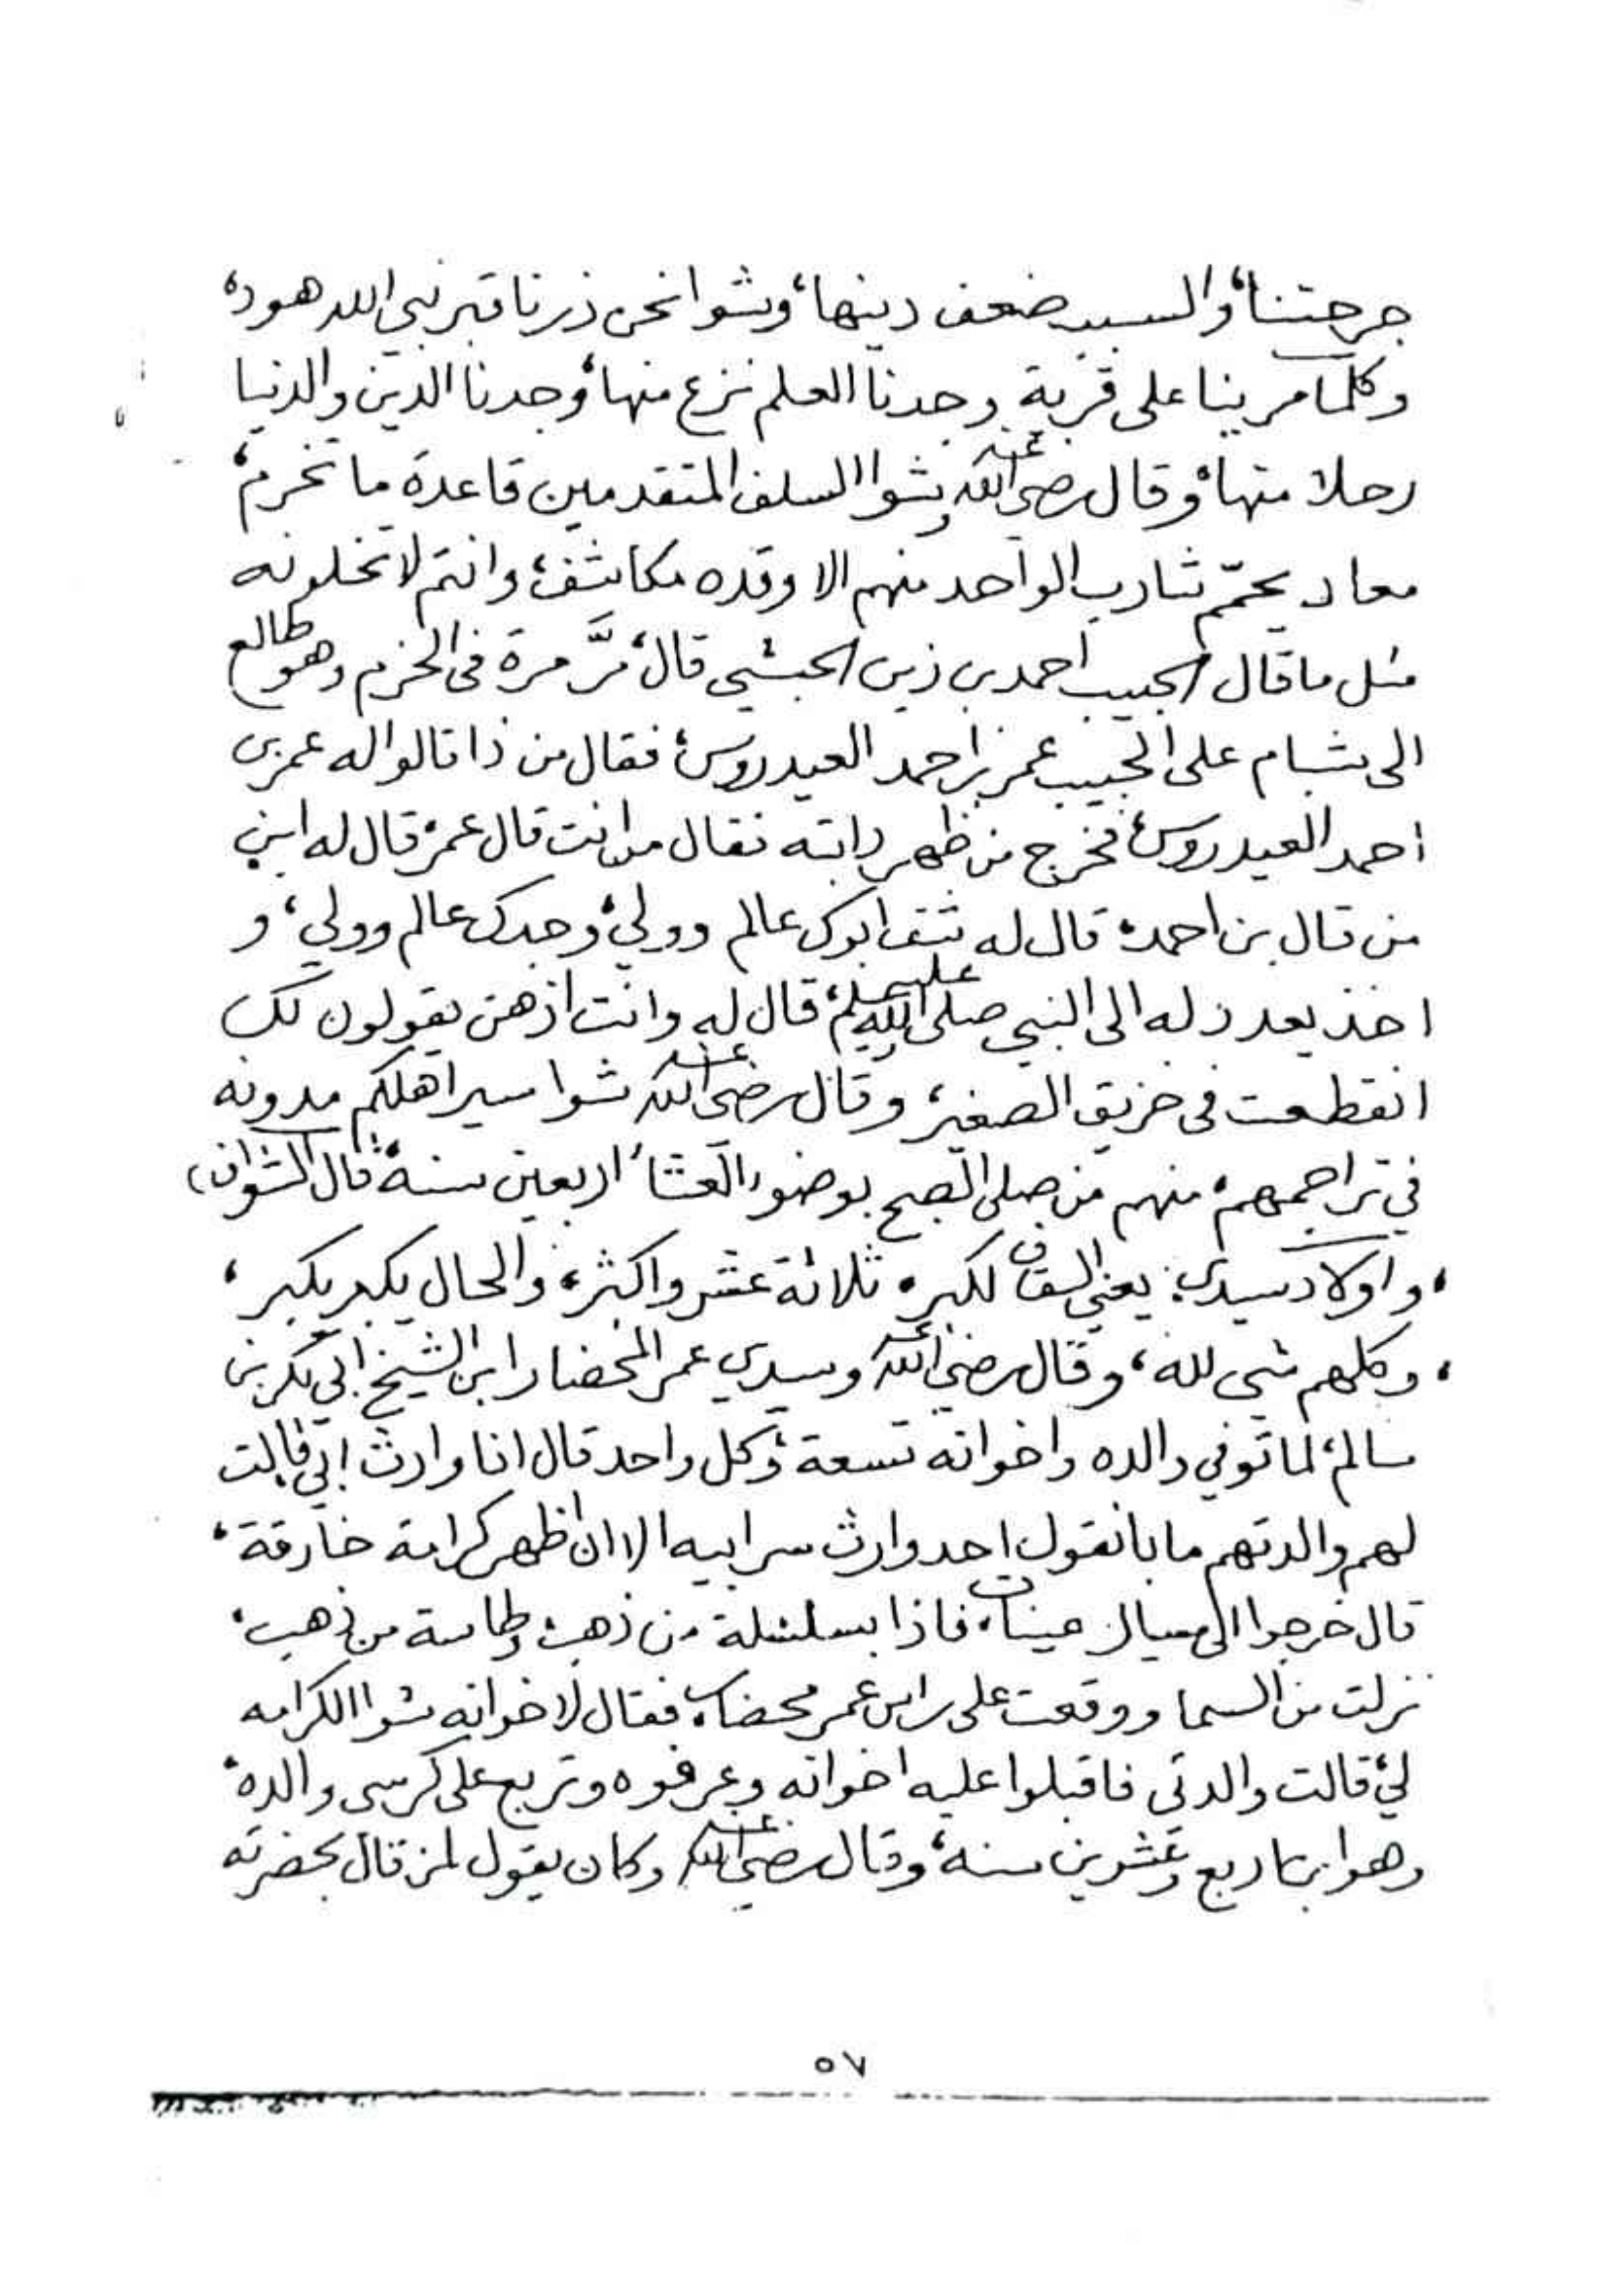 جرحتنا، والسبب ضعف دينها، وشوا نحن زرنا قبر نبي الله هود،
وكلما مرينا على قرية وجدنا العلم نزع منها، وجدنا الدين والدنيا
رحلا منها، وقال رضي الله عنه وشوا السلف المتقدمين قاعدة ما تخرم،
معاد يحمّم شارب الواحد منهم الا وقده مكاشف، وانتم لا تخلونه
مثل ما قال الحبيب احمد بن زين الحبشي قال، مرَّ مرة في الحزم وهو طالع
الى شبام على الحبيب عمر بن احمد العيدروس، فقال من ذا قالوا له عمر بن
احمد العيدروس، فخرج من ظهر دابته فقال من انت قال عمر، قال له ابن
من قال بن احمد، قال له شف ابوك عالم وولي، وجدك عالم وولي، و
اخذ يعدد له الى النبي صلى الله عليه وسلم، قال له وانت اذهن يقولون لك
انقطعت في خريق الصغير، وقال رضي الله عنه شوا سير اهلكم مدونه
في تراجمهم، منهم من صلى الصبح بوضوء العشاء اربعين سنة، قال الشواف)
، واولاد سيدي: يعني السقاف لكبر، ثلاثة عشر واكثر، والحال يكبر يكبر،
، وكلهم شي لله، وقال رضي الله عنه وسيدي عمر المحضار ابن الشيخ ابي بكر بن
سالم، لما توفي والده واخوانه تسعة، وكل واحد قال انا وارث ابي قالت
لهم والدتهم ما بانقول احد وارث سر ابيه الا ان اظهر كرامة خارقة،
قال خرجوا الى عينات، فاذا بسلسلة من ذهب وطاسة من ذهب،
نزلت من السما ووقعت على راس عمر محضار، فقال لاخوانه شوا الكرامه
لي، قالت والدتي فاقبلوا عليه اخوانه وعرفوه وتربع على كرسي والده،
وهو ابن اربع وعشرين سنة، وقال رضي الله عنه وكان يقول لمن قال بحضرته
٥٧